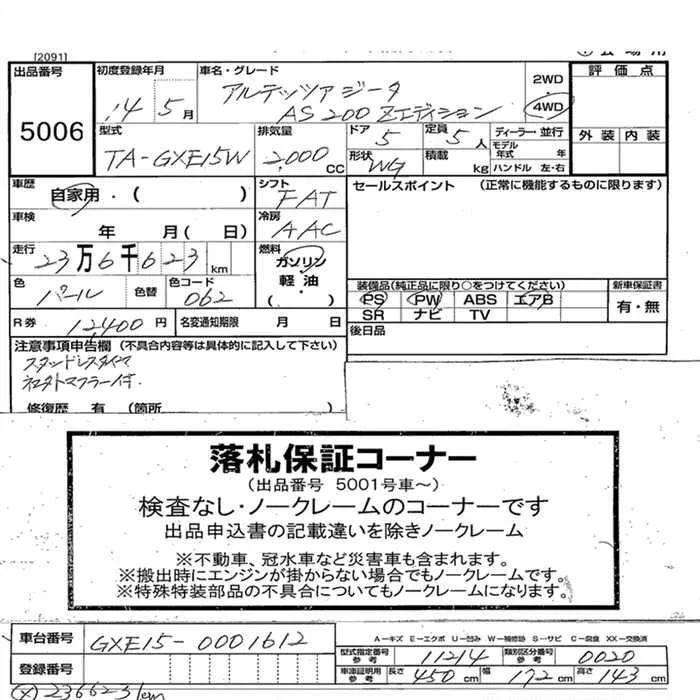 [2091]
出品番号 初度登録年月 車名・グレード 2WD 評価点
5006 14 5月 アルテッツァジータ 4WD
AS200 Zエディション
型式 排気量 ドア 定員 ディーラー・並行 外装 内装
TA-GXE15W 2,000CC 5 5人 モデル年式 年
形状 WG 積載 kg ハンドル 左・右
車歴 自家用・( ) シフト FAT セールスポイント (正常に機能するものに限ります)
車検 年 月(日) 冷房 AAC
走行 23万6千623km 燃料 ガソリン
軽油
( . )
色 パール 色替 色コード 062
装備品(純正品に限り○をつけてください) 新車保証書
PS PW ABS エアB 有・無
SR ナビ TV
R券 12,400円 名変通知期限 月 日 後日品
注意事項申告欄 (不具合内容等は具体的に記入して下さい)
スタッドレスタイヤ
修復歴 有 (箇所
落札保証コーナー
(出品番号 5001号車～)
検査なし・ノークレームのコーナーです
出品申込書の記載違いを除きノークレーム
※不動車、冠水車など災害車も含まれます。
※搬出時にエンジンが掛からない場合でもノークレームです。
※特殊特装部品の不具合についてもノークレームになります。
A-キズ E-エクボ U-凹み W-補修跡 S-サビ C-腐食 XX-交換済
車台番号 GXE15-0001612
型式指定番号 参考 11214 類別区分番号 参考 0020
登録番号
車庫証明用 参考 長さ 450cm 幅 172cm 高さ 143cm
236623km